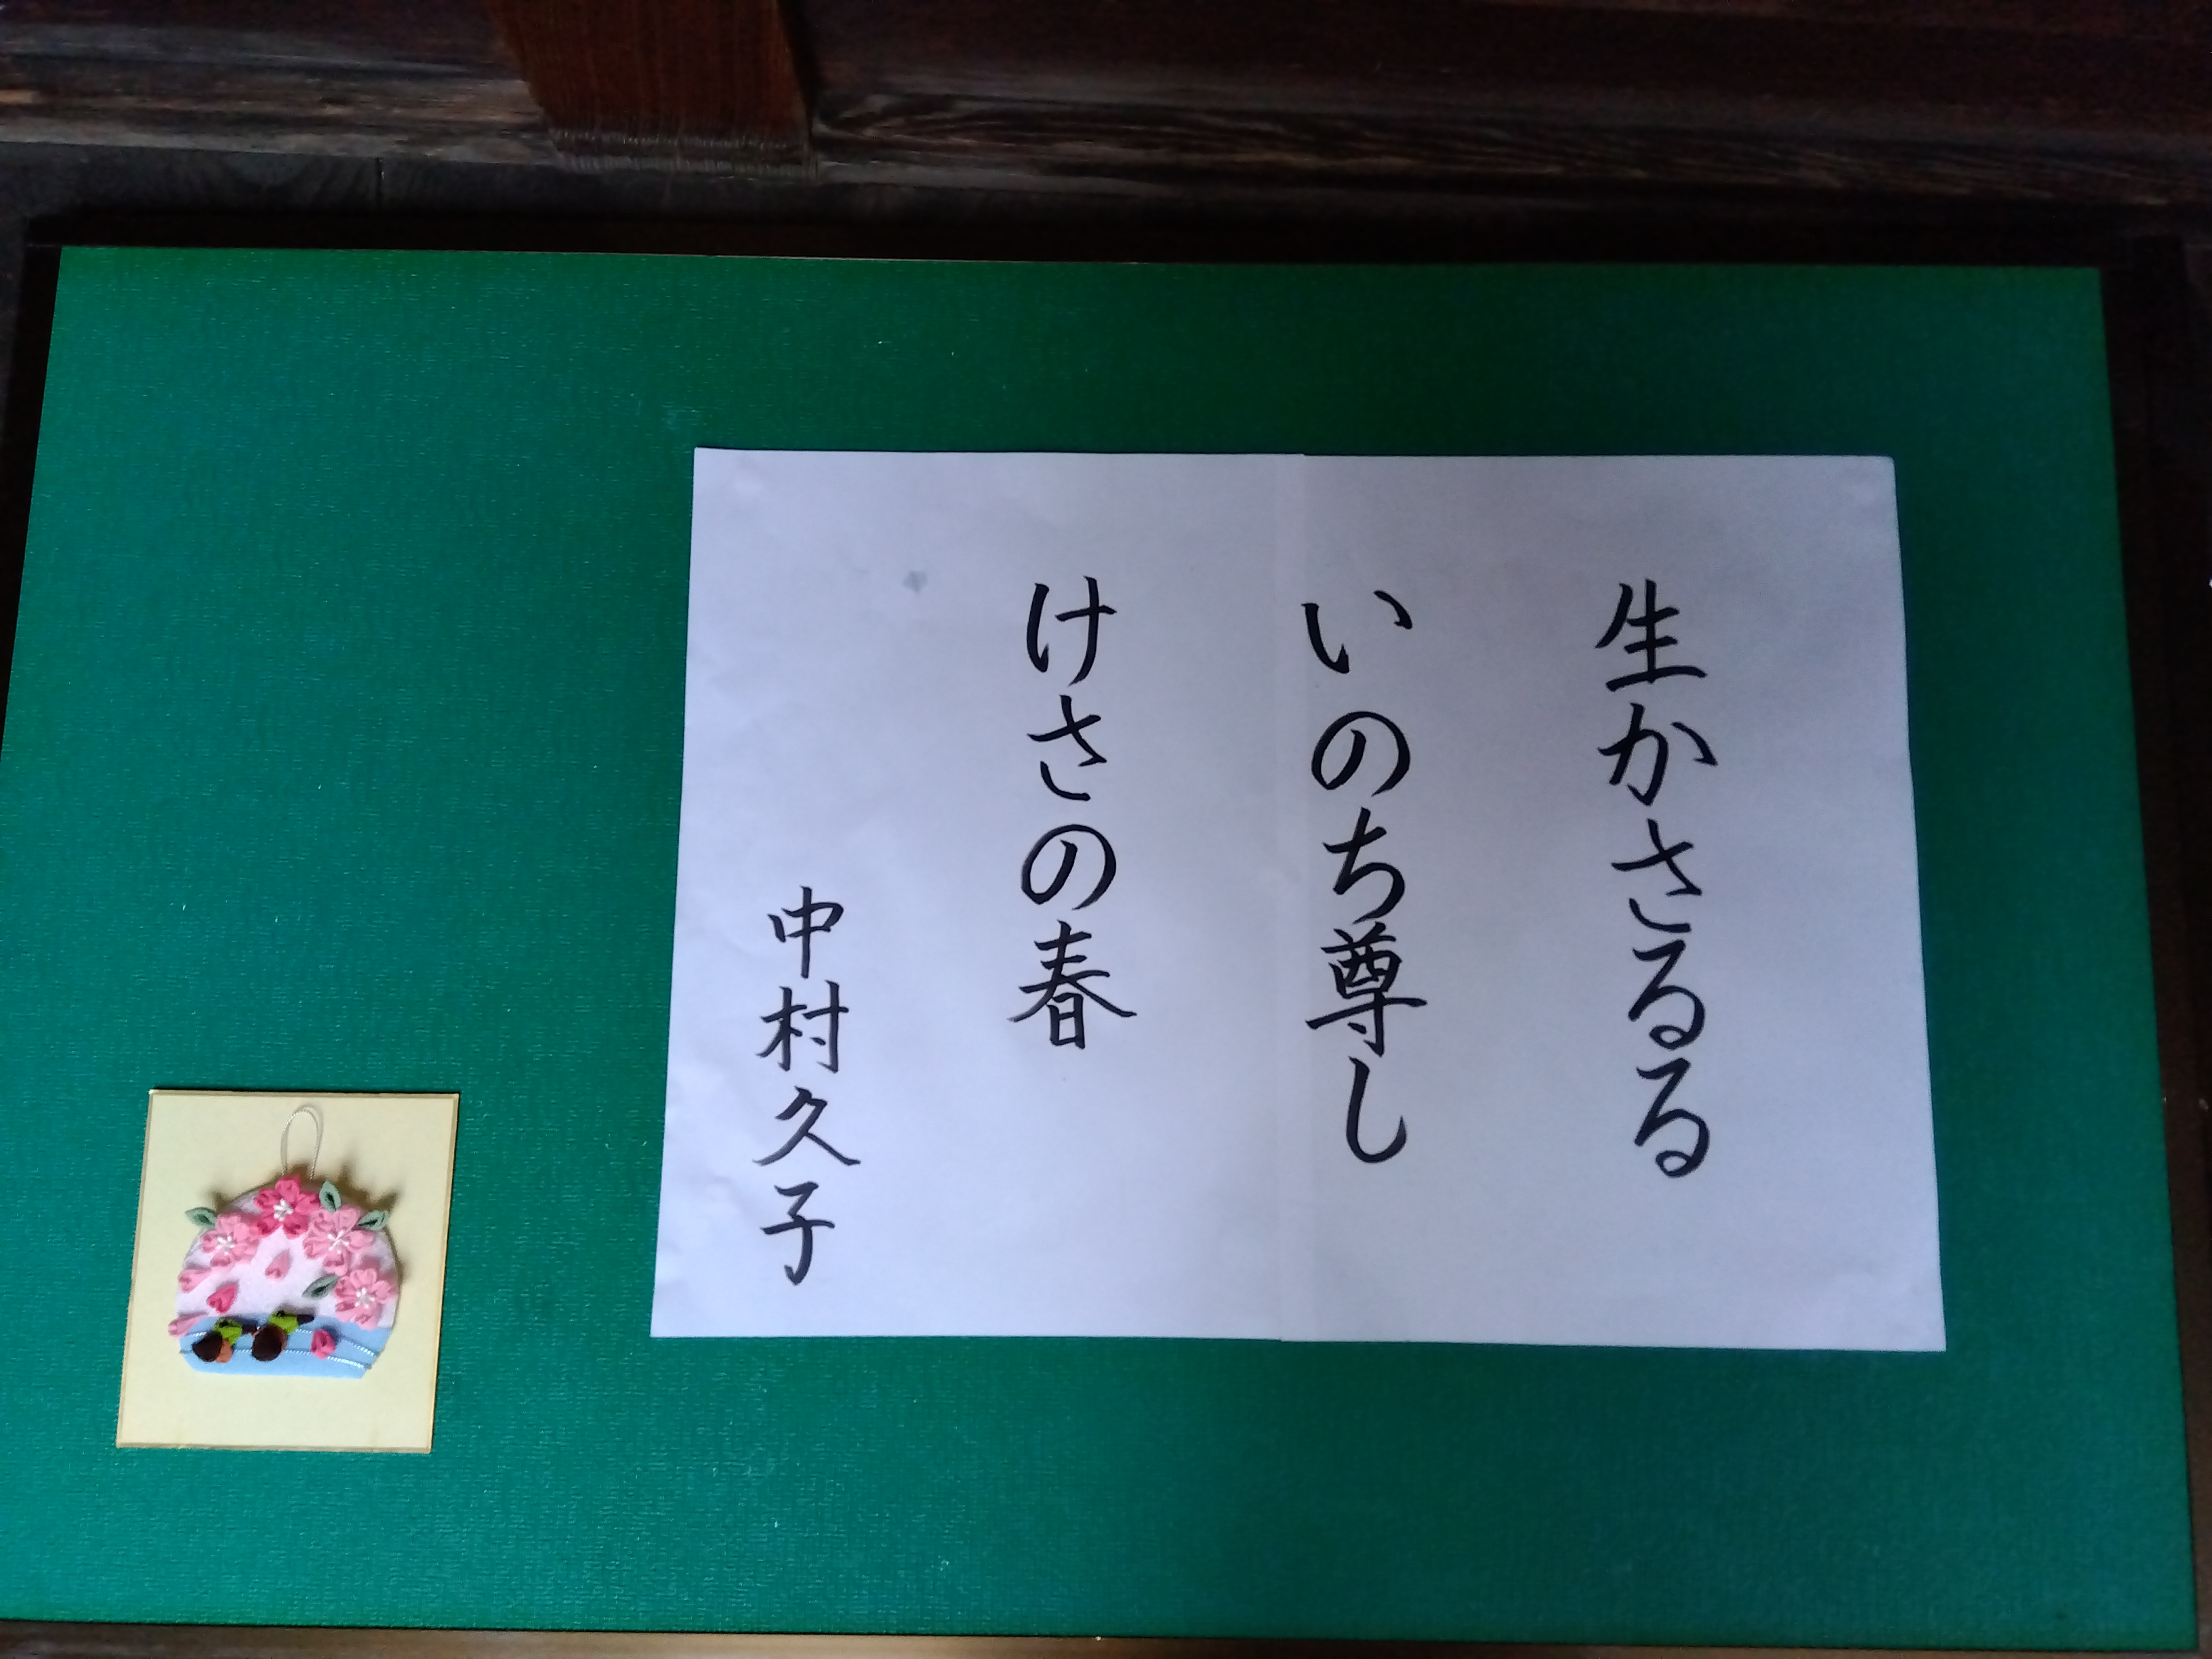 生かさるる
いのち尊し
けさの春
中村久子